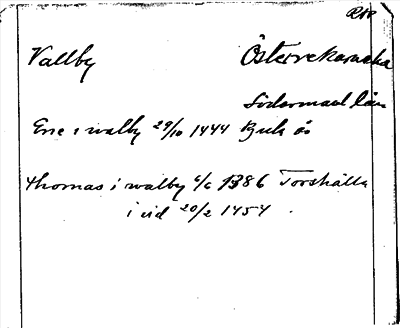 RAP
Vallby Österrekarneha
Södermanl län
Eric i walby 29/10 1444 Bjuh ös
Thomas i walby 6/6 1386 Torshälla
i vid 20/2 1454